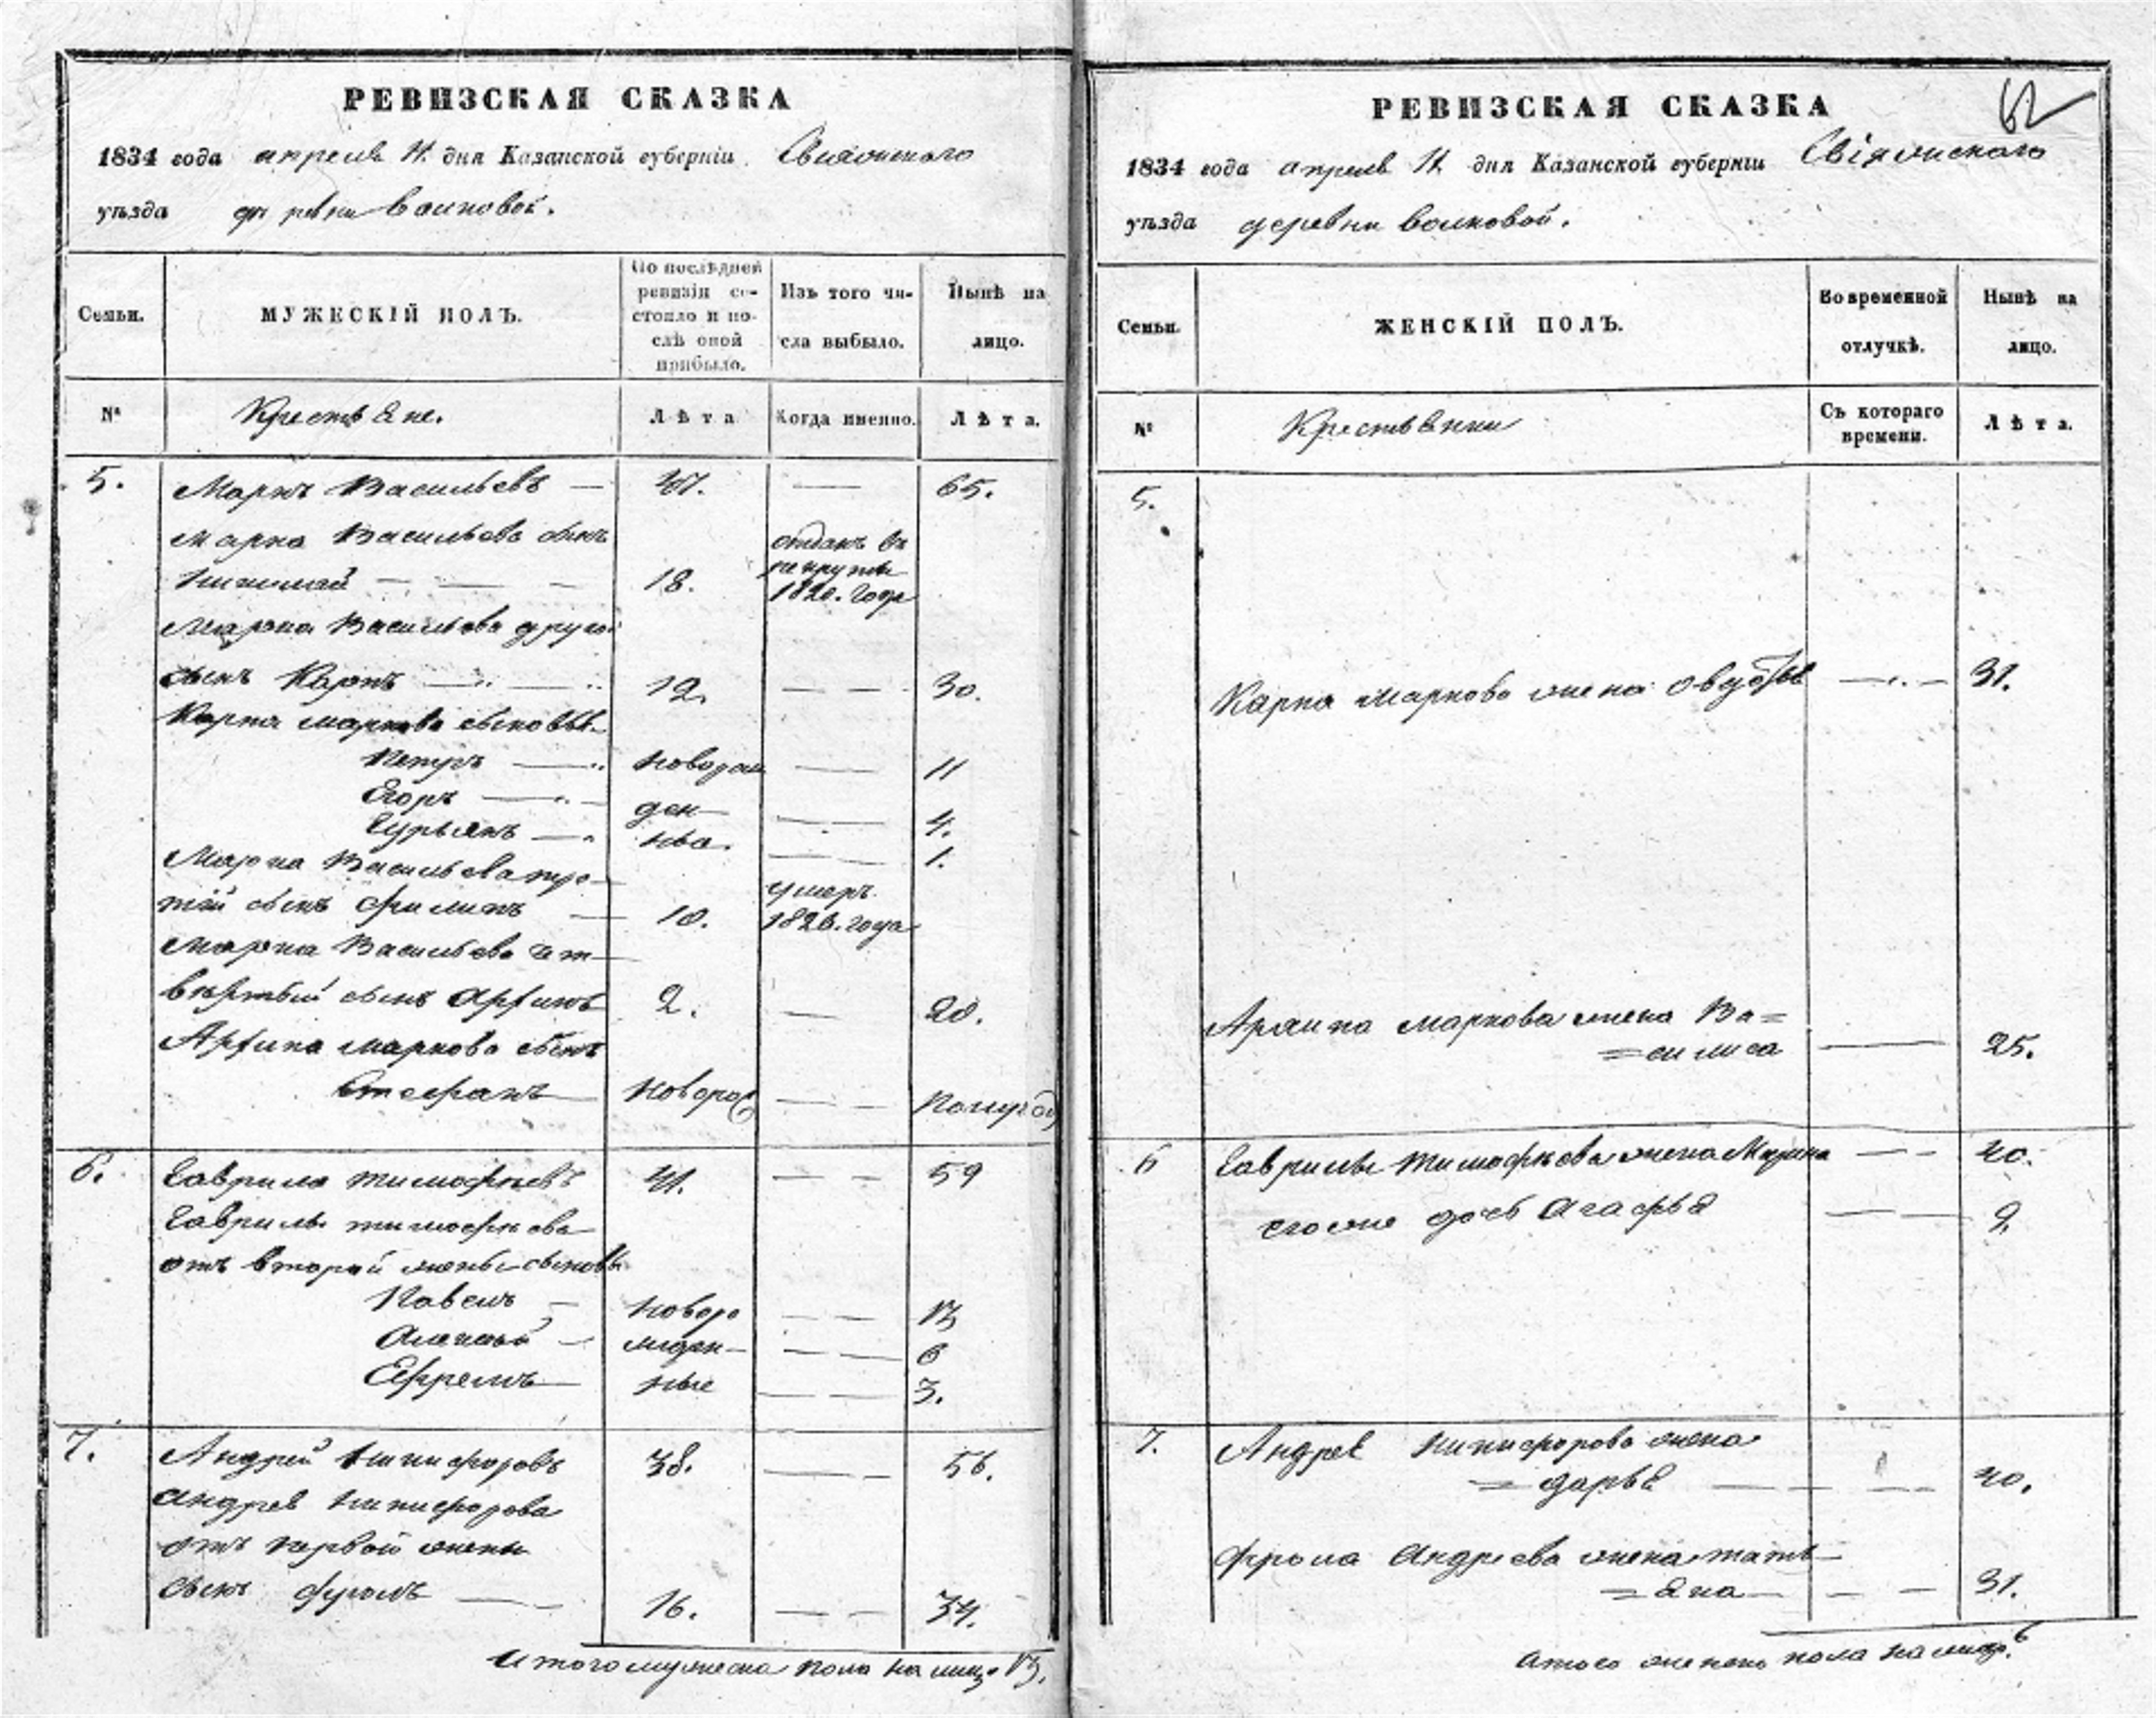 РЕВИЗСКАЯ СКАЗКА
1834 года апреля 11. дня Казанской губерніи Свіяжскаго
уѣзда деревни волковой.
Семьи.
МУЖЕСКІЙ ПОЛЪ.
По послѣдней
ревизіи со-
стояло и по-
слѣ оной
прибыло.
Изъ того чи-
сла выбыло.
Нынѣ на
лицо.
№
Крестьяне.
Лѣта
Когда именно.
Лѣта.
5. Маркъ Васильевъ — 47. — 65.
Марка Васильева сынъ отданъ въ
Николай — — — 18. рекруты
1820. года
Марка Васильева другой
сынъ Карпъ — — 12. — — 30.
Карпа маркова сыновья
Петръ — новорож — 11
Егоръ — ден — 4.
Гурьянъ — ныа. — 1.
Марка Васильева тре-
тій сынъ Филипъ — 10. умеръ
1826. года
Марка Васильева чет-
вѣртый сынъ Архипъ 2. — 20.
Архипа маркова сынъ
Стефанъ — новорож — — полугод
6. Гаврила тимофѣевъ 41. — — 59
Гаврилы тимофѣева
отъ второй жены сыновья
Павелъ — новоро — — 13
Алексѣй — жден — — — 6
Ефремъ — ные — — 3.
7. Андрей Никифоровъ 38. — — 56.
Андрея Никифорова
отъ первой жены
сынъ фролъ — — 16. — — 34.
Итого мужеска пола на лицо 13.
62
РЕВИЗСКАЯ СКАЗКА
1834 года апреля 11. дня Казанской губерніи Свіяжскаго
уѣзда деревни волковой.
Семьи.
ЖЕНСКІЙ ПОЛЪ.
Во временной
отлучкѣ.
Нынѣ на
лицо.
№
Крестьянки
Съ котораго
времени.
Лѣта.
5.
Карпа Маркова жена — — 31.
Архипа маркова жена Ва=
=силиса — 25.
6 Гаврилы тимофѣева жена Марина — — 40.
его же дочь Агафья — — 9
7. Андрея Никифорова жена
= дарья — — — 40.
фрола Андреева жена тать—
= яна — — — 31.
Итого женска пола на лицо 6